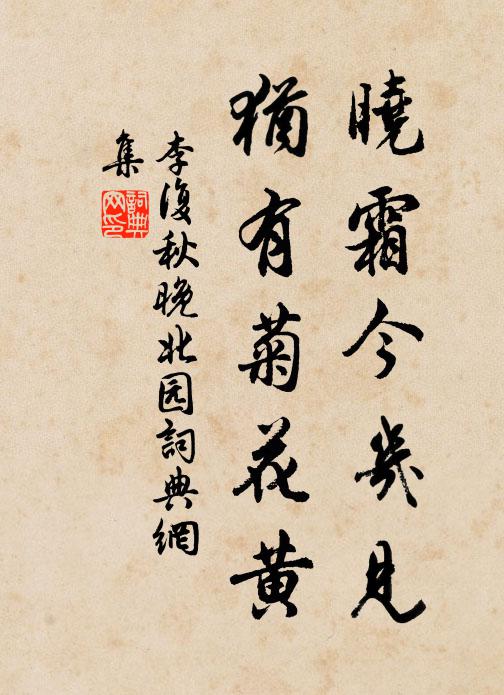 曉霜今幾見
猶有菊花黄
李復秋晚北园詞典網
集
詞典网印